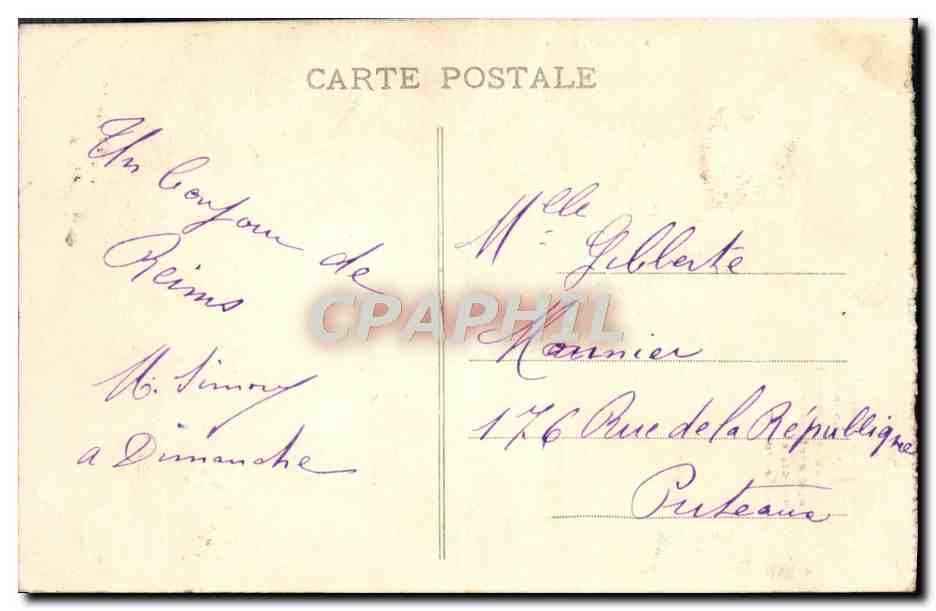 CARTE POSTALE
Un bonjour de
Reims
M. Simon
a Dimanche
CPARPHIL
Mlle Gilberte
Mounier
176 Rue de la République
Puteaux